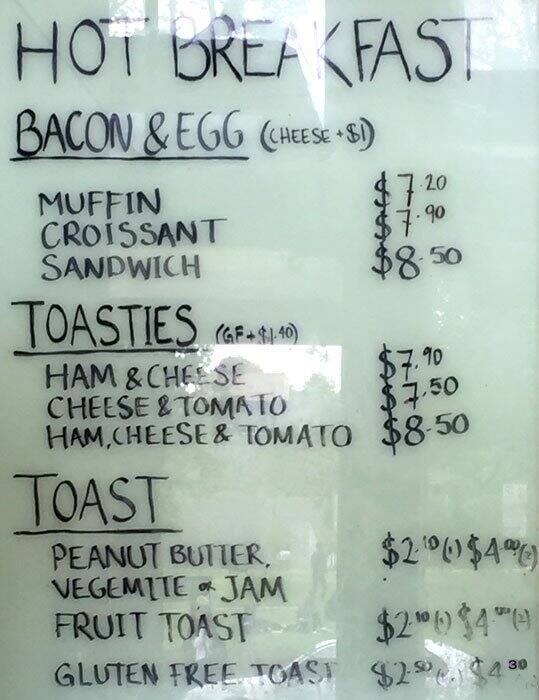 HOT BREAKFAST
BACON & EGG (CHEESE + $1)
MUFFIN $7.20
CROISSANT $7.90
SANDWICH $8.50
TOASTIES (GF + $1.40)
HAM & CHEESE $7.90
CHEESE & TOMATO $7.50
HAM, CHEESE & TOMATO $8.50
TOAST
PEANUT BUTTER, $2.10 (1) $4.00 (2)
VEGEMITE or JAM
FRUIT TOAST $2.10 (1) $4.00 (2)
GLUTEN FREE TOAST $2.50 $4.30